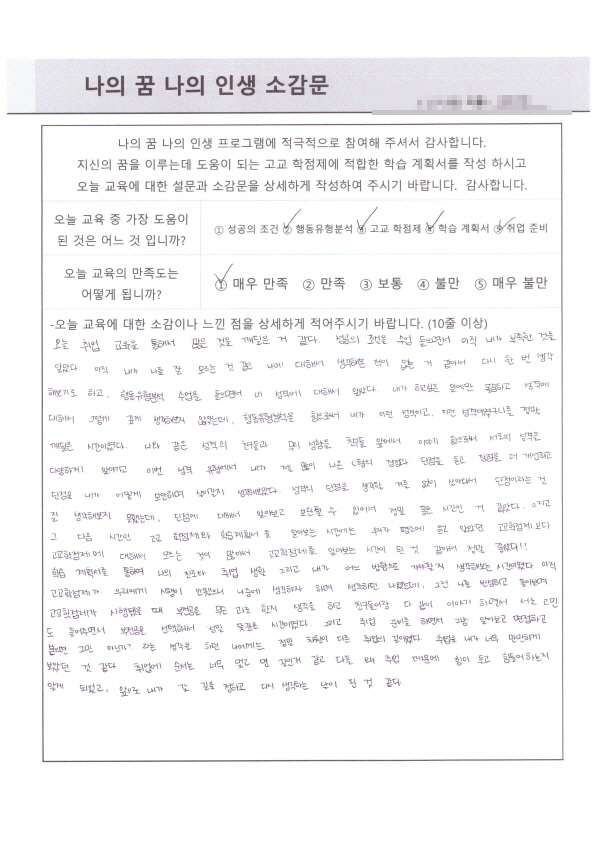 나의 꿈 나의 인생 소감문
나의 꿈 나의 인생 프로그램에 적극적으로 참여해 주셔서 감사합니다.
지신의 꿈을 이루는데 도움이 되는 고교 학점제에 적합한 학습 계획서를 작성 하시고
오늘 교육에 대한 설문과 소감문을 상세하게 작성하여 주시기 바랍니다. 감사합니다.
오늘 교육 중 가장 도움이
된 것은 어느 것 입니까?
① 성공의 조건 ② 행동유형분석 ③ 고교 학점제 ④ 학습 계획서 ⑤ 취업 준비
오늘 교육의 만족도는
어떻게 됩니까?
① 매우 만족 ② 만족 ③ 보통 ④ 불만 ⑤ 매우 불만
-오늘 교육에 대한 소감이나 느낀 점을 상세하게 적어주시기 바랍니다. (10줄 이상)
오늘 취업 교육을 통해서 많은 것을 깨달은 거 같다. 성공의 조건 수업 들으면서 아직 내가 부족한 것을
알았다. 아직 내가 나를 잘 모르는 것 같은 나에 대해서 생각해본 적이 없는 거 같아서 다시 한 번 생각
해보기로 하고, 행동유형분석 수업을 들으면서 내 성격에 대해서 알았다. 내가 하고싶은 일에만 성격에
대해서 그렇게 깊게 생각하진 않았는데, 행동유형분석을 함으로써 내가 이런 성격이고, 이런 성격이였구나를 정말
깨달은 시간이였다. 나와 같은 성격의 친구들과 우리 성향을 친구들 앞에서 이야기 함으로써 서로의 성격을
다양하게 알아가고 이번 성격 유형에서 내가 제일 많이 나온 C형의 장점과 단점을 듣고 장점을 더 개선하고
단점을 내가 어떻게 보완하며 살아갈지 생각해보았다. 성격의 단점을 생각한 겨를 없이 살아와서 단점이라는 건
잘 생각해보지 못했는데, 단점에 대해서 알아보고 보완할 수 있어서 정말 좋은 시간인 거 같았다. 그리고
그 다음 시간인 고교 학점제와 학습계획서를 알아보는 시간에는 우리가 평소에 듣고 알았던 고교학점제보다
고교학점제에 대해서 모르는 것이 많아서 고교학점제를 알아보는 시간이 된 것 같아서 정말 좋았다!!
학습 계획서를 통하여 나의 진로와 취업 생활 그리고 내가 어느 방향으로 가야할지 생각해보는 시간이였다. 아직
고교학점제가 우리에게 시행이 안됐으니 나중에 생각하자 하며 생각하던 나였는데, 그런 나를 반성하고 돌이켜보며
고교학점제가 시행됐을 때 부전공을 무슨 과로 할지 생각을 하고 친구들이랑 다 같이 이야기 하면서 서로 고민
도 들어주면서 부전공을 선택해서 정말 뜻깊은 시간이였다. 그리고 취업 준비를 하면서 그냥 알아보고 면접하고
붙으면 그만 아닌가? 라는 생각을 하던 나에게는 정말 차원이 다른 취업의 길이였다. 취업을 내가 너무 만만하게
봤었던 것 같다. 취업에 순서는 너무 멀고 먼 길인거 같고 다들 왜 취업 때문에 힘이 들고 힘들어하는지
알게 되었고, 앞으로 내가 갈 길을 정하고 다시 생각하는 날이 된 것 같다.